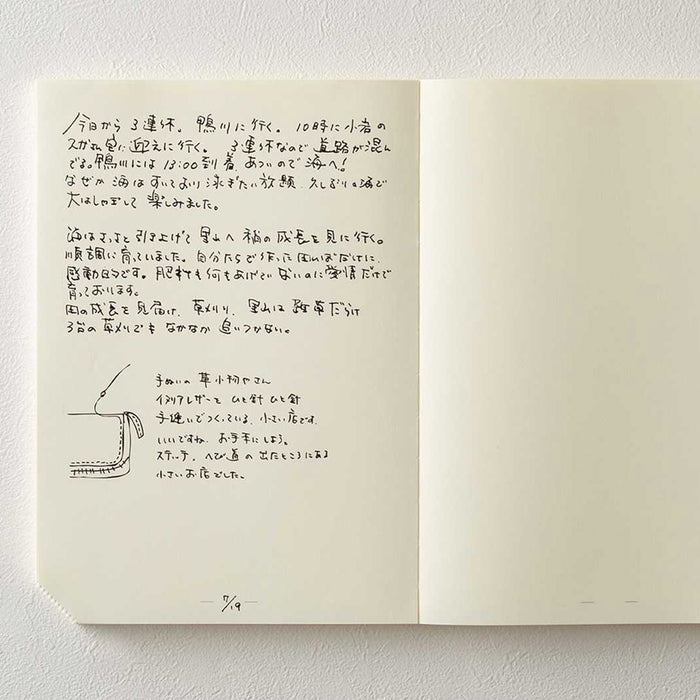 今日から3連休。鴨川に行く。10時に小者の
迎えに行く。3連休なので道路が混ん
でる。鴨川には13:00到着、あついので海へ!
なぜか海はすいており泳ぎたい放題、久しぶりの海で
大はしゃぎして楽しみました。
海はさっさと引き上げて里山へ稲の成長を見に行く。
順調に育っていました。自分たちで作った田んぼだけに、
感動的です。肥料も何もあげていないのに愛情だけで
育っております。
田の成長を見届け、草刈り、里山は雑草だらけ
3台の草刈でもなかなか追いつかない。
手ぬいの革小物やさん
イタリアレザーをひと針ひと針
手縫いでつくっている、小さい店です。
いいですね、お手本にしよう。
ステッチ、へび道の出たところにある
小さいお店でした。
7/19